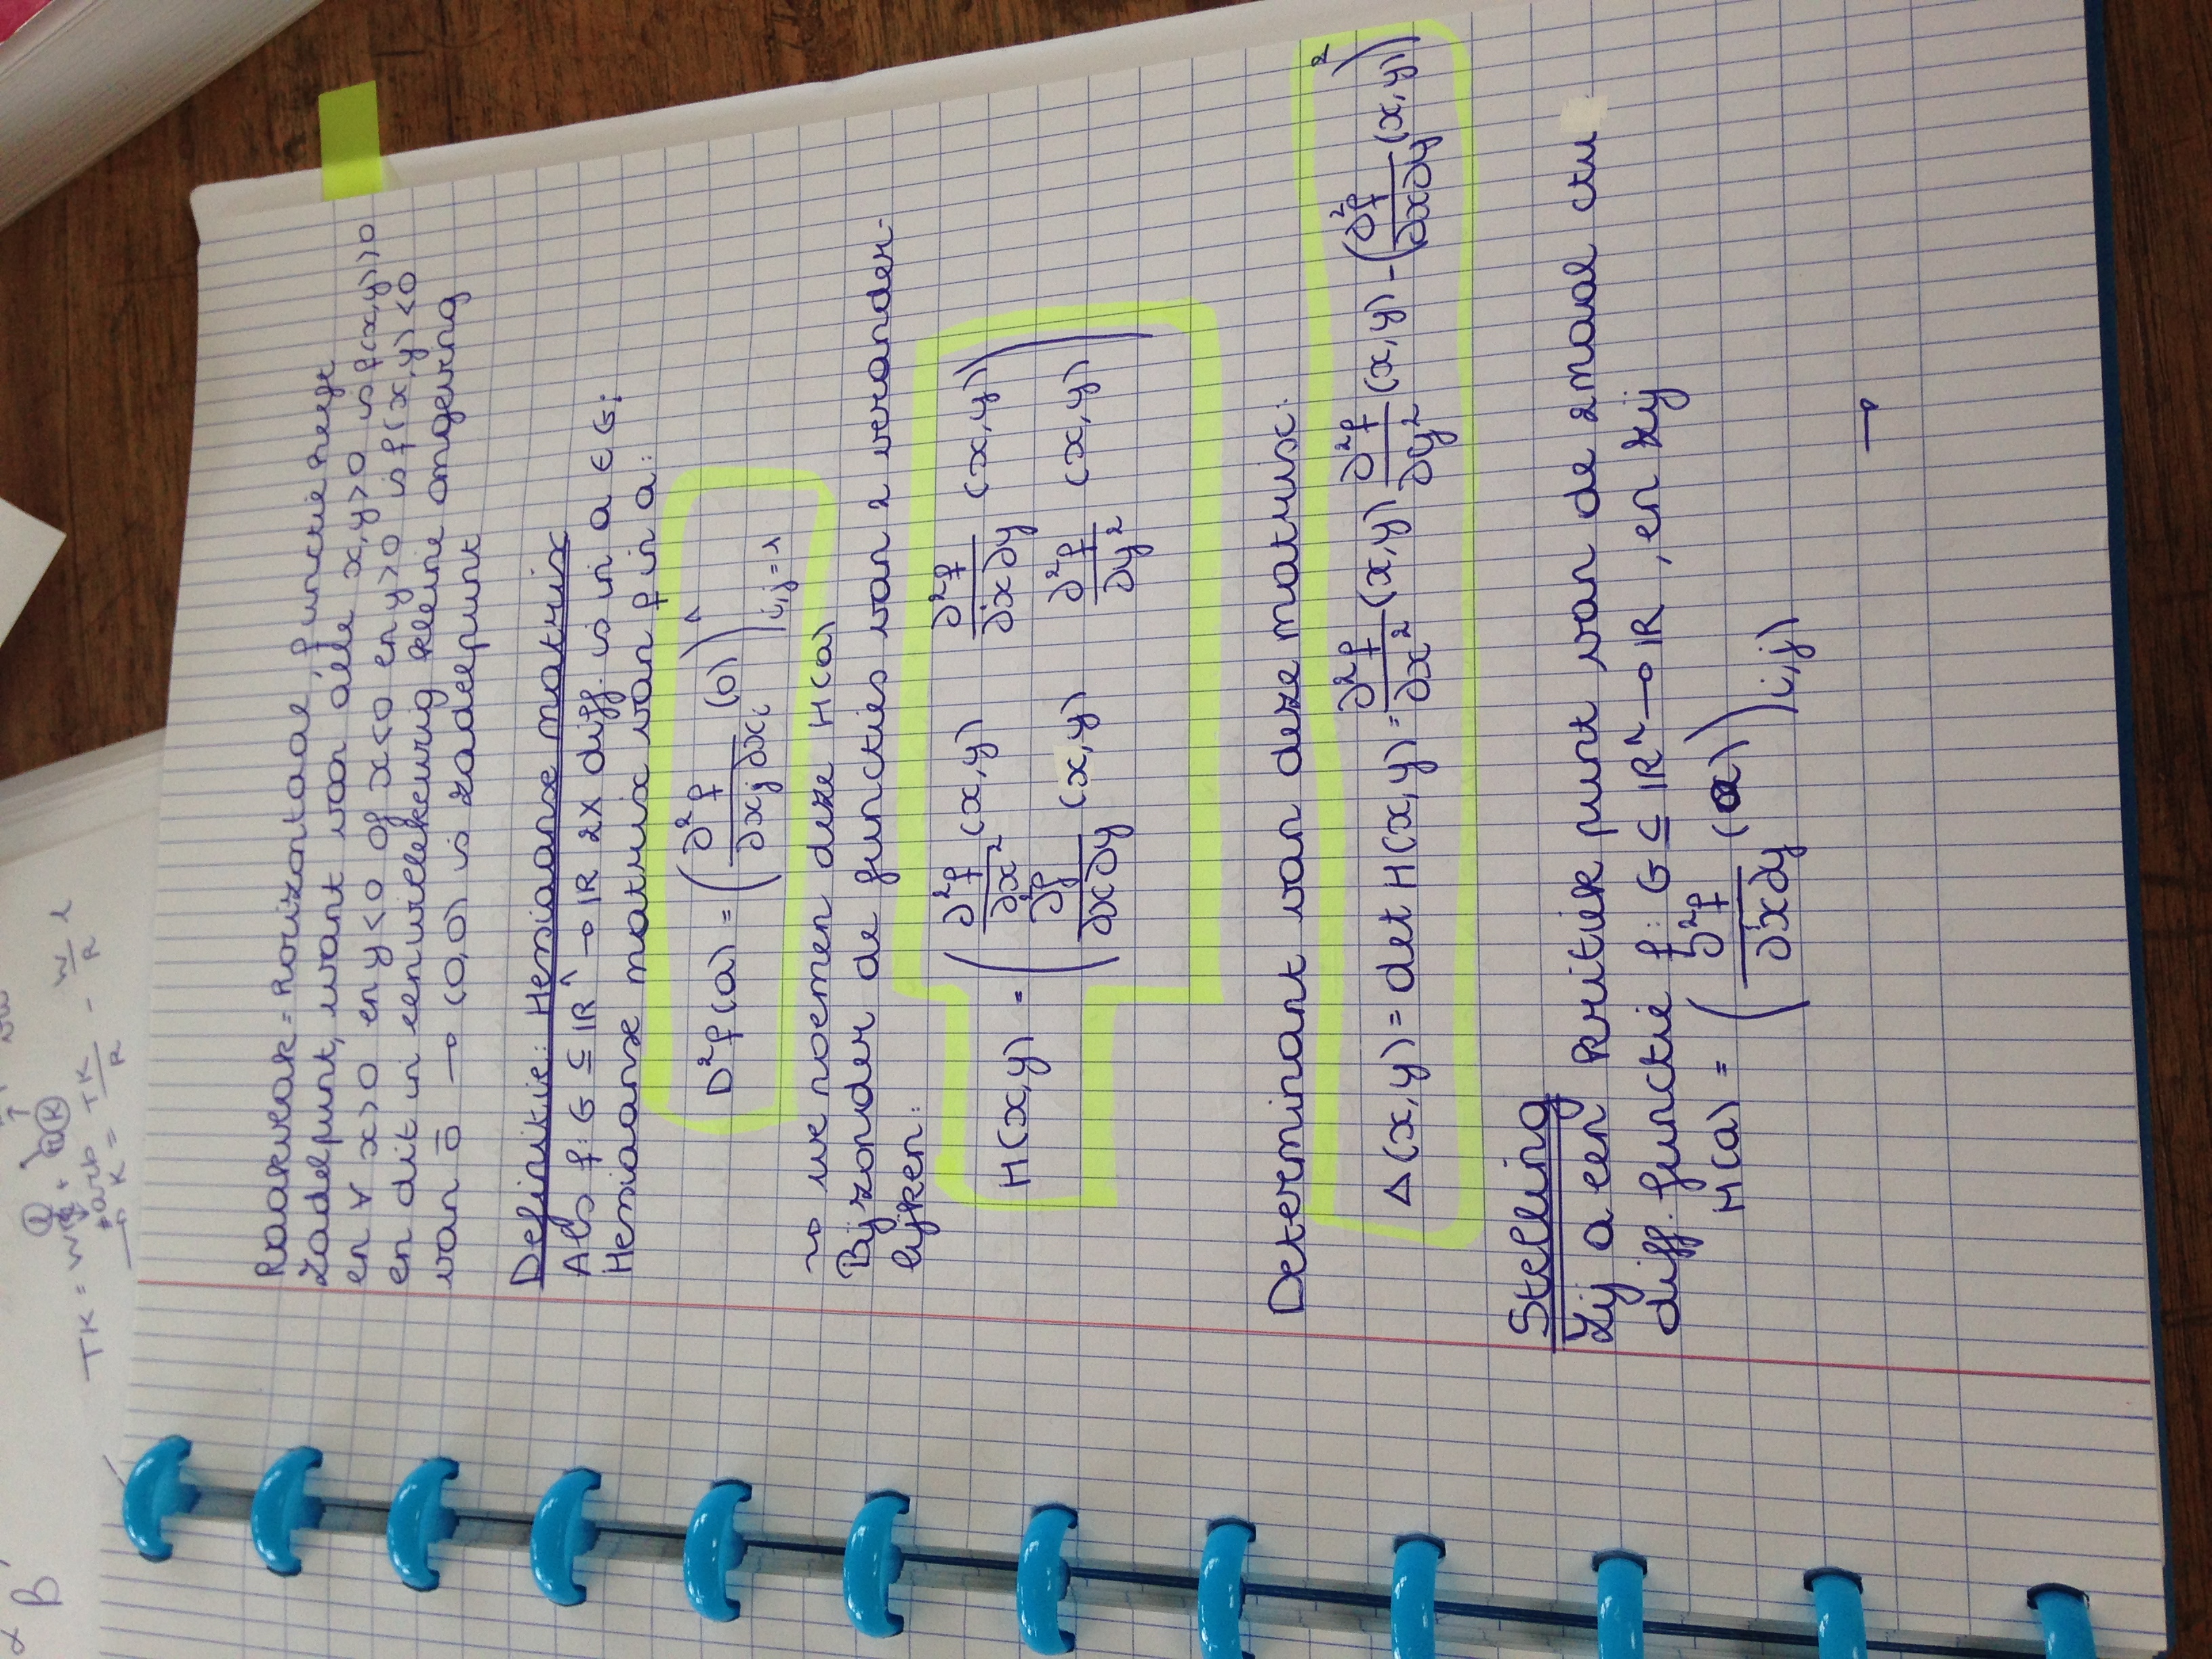 Raakvlak = horizontaal, functie heeft
Zadelpunt, want voor alle x,y>0 is f(x,y)>0
en ∀ x>0 en y<0 of x<0 en y>0 is f(x,y)<0
en dit in een willekeurig kleine omgeving
van ō → (0,0) is zadelpunt
Definitie: Hessiaanse matrix
Als f: G ⊆ ℝⁿ → ℝ 2x diff. is in a ∈ G;
Hessiaanse matrix van f in a:
D²f(a) = (∂²f/∂xj∂xi (a))ⁿ i,j=1
~> we noemen deze H(a)
Bijzonder de functies van 2 verander-
lijken:
H(x,y) = ( ∂²f/∂x² (x,y) ∂²f/∂x∂y (x,y)
∂²f/∂x∂y (x,y) ∂²f/∂y² (x,y) )
Determinant van deze matrix:
Δ(x,y) = det H(x,y) = ∂²f/∂x² (x,y) ∂²f/∂y² (x,y) - (∂²f/∂x∂y (x,y))²
Stelling
Zij a een kritiek punt van de 2maal ctu
diff. functie f: G ⊆ ℝⁿ → ℝ, en zij
H(a) = (∂²f/∂x∂y (a)) i,j
→
TK = + 
arb
K = TK/R - W/R L
B